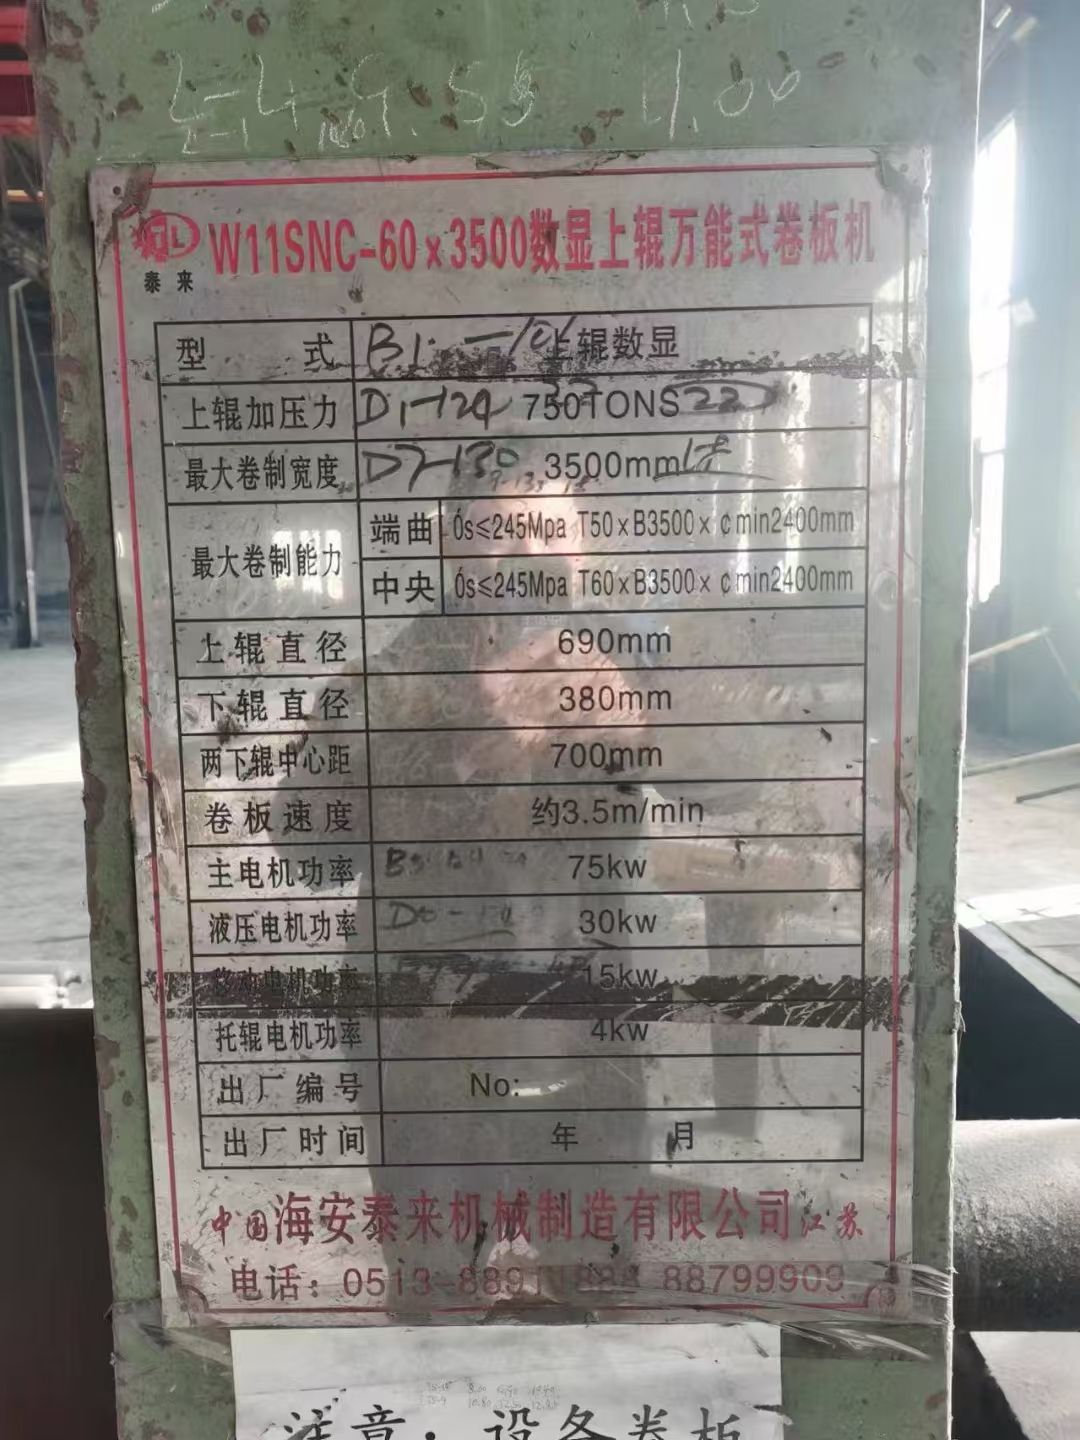 4.00
TL
泰来
W11SNC-60×3500数显上辊万能式卷板机
型 式 上辊数显
上辊加压力 D1-124 750TONS 22
最大卷制宽度 D7-130 3500mm
最大卷制能力 端曲 Ós≤245Mpa T50×B3500×¢min2400mm
中央 Ós≤245Mpa T60×B3500×¢min2400mm
上辊直径 690mm
下辊直径 380mm
两下辊中心距 700mm
卷板速度 约3.5m/min
主电机功率 75kw
液压电机功率 30kw
移动电机功率 15kw
托辊电机功率 4kw
出厂编号 No:
出厂时间 年 月
中国海安泰来机械制造有限公司江苏
电话：0513-88911888 88799909
注意：设备卷板